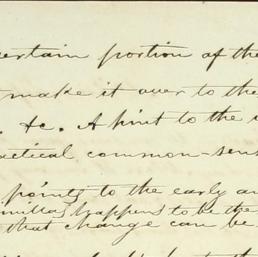 certain portion of the
make it over to the
&c. A hint to the
practical common-sens
points to the early an
happens to be the
that change can be